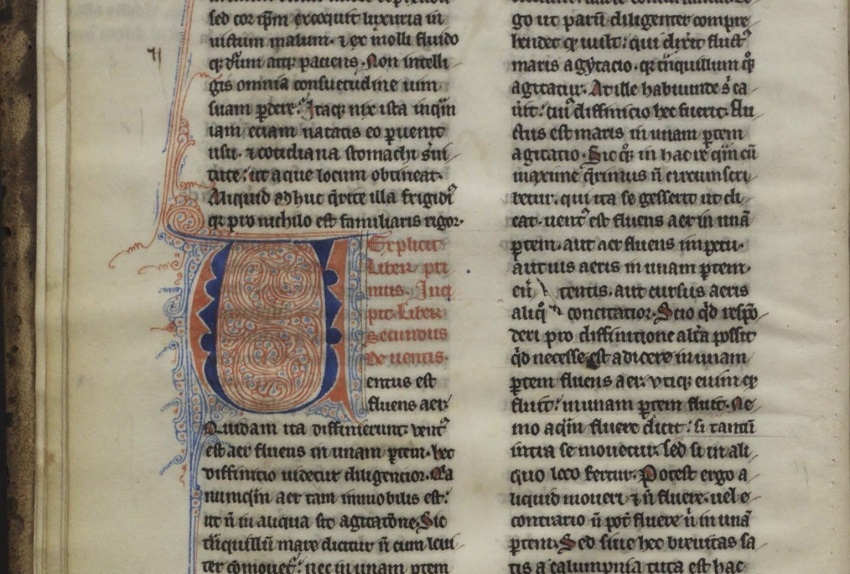 sed cor ip̅m excoquit luxuria in
uictum malum · ⁊ ex molli fluido
q̅ durum atq̅ paciens · Non intelli
gis omnia consuetudine uim
suam ꝑdere : Itaq̅ nix ista inqͥn
iam eciam natatis eo ꝑuenit
usu · ⁊ cotidiana stomachi sͥui
tute : ut aque locum obtineat ·
Aliquid adhuc qͥrite illa frigidiꝰ
qr̅ pro nichilo est familiaris rigor ·
Explicit
Liber pri
mus · Inci
pit Liber
Secundus
de uentis ·
Uentus est
fluens aer ·
Quidam ita diffinierunt uentꝰ
est aer fluens in unam ꝑtem · hec
diffinitio uidetur diligencior · Qa
nunqͣm aer tam immobilis est :
ut n̅ in aliqua sit agitac̅one · Sic
tn̅quillu̅ mare dicitur n̅ cum leui
ter co̅mouet᷑ : nec in unam ꝑtem
go ut parum diligenter compre
hendet q̅ uult : qui dixit fluctꝰ
maris agytacio · qr̅ tn̅quillum q̅
agitatur · At ille habunde s̅ ca
uit : diffinicio hec fuerit · Flu
ctus est maris in unam ꝑtem
agitatio · Sic q̅ in hac re qͥn cu̅
maxime qͥrimus n̅ circumscri
betur · qui ita se gesserit ut di
cat · uentꝰ est fluens aer in una̅
ꝑtem · aut aer fluens impetu ·
aut uis aeris in unam ꝑtem ·
eu̅tis · aut cursus aeris
aliqͦ concitacior · Scio qd̅ respo̅
deri pro diffinitione alt̅a possit
qd̅ necesse est adicere in unam
ꝑtem fluens aer · vtiq̅ enim q̅
fluit : in unam ꝑtem fluit · Ne
mo aqͣm fluere dicit : si tantu̅
intra se mouetur · sed si in ali
quo loco fertur · Potest ergo a
liquid moueri ⁊ n̅ fluere · uel e
contrario n̅ pot̅ fluere n̅ in una̅
ꝑtem · Sed siue hec breuitas sa
tis a calumpnia tuta est hac